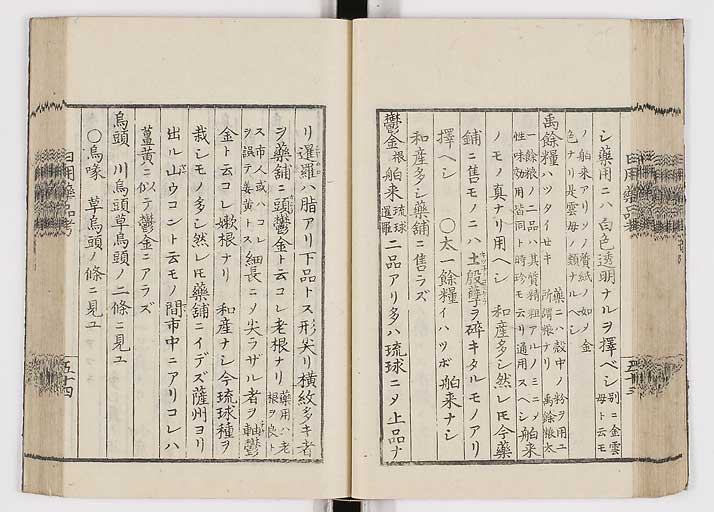 シ藥用ニハ白色透明ナルヲ擇ベシ 別ニ金雲母ト云モ
ノ舶来アリソノ著紙ノ如ノ金色ナリ是雲母ノ類ナルベシ
禹餘糧 ハツタイセキ 藥ニハ殻中ノ粉ヲ用ユ所謂粮ナリ 禹餘粮太
一餘粮ノ二品ハ其質精粗アルノミニノ性味効用皆同ト時珍モ云リ通用スベシ 舶来
ノモノ真ナリ用ヘシ 和産多シ然レ𪜈今藥
鋪ニ售モノニハ土殷孽ヲ碎キタルモノアリ
擇ヘシ 〇太一餘糧 イハツボ 舶来ナシ
和産多シ藥鋪ニ售ラズ
鬱金 根 舶来 琉球暹羅 二品アリ多ハ琉球ニタ上品ナ
リ暹羅ハ脂アリ下品トス形尖リ横紋多キ者
ヲ藥鋪ニ頭鬱金ト云コレ老根ナリ 藥用ハ老根ヲ良ト
ス市人或ハコレヲ誤テ姜黄トス 細長ニノ尖ラザル者ヲ 鬱
金ト云コレ嫩根ナリ 和産ナシ今琉球種ヲ
栽シモノ多シ然レ𪜈藥鋪ニイデズ薩州ヨリ
出ル山ウコント云モノ間市中ニアリコレハ
薑黄ニ似テ鬱金ニアラズ
烏頭 川烏頭草烏頭ノ二條ニ見ユ
〇烏喙 草烏頭ノ條ニ見ユ
日用藥品考
五十四